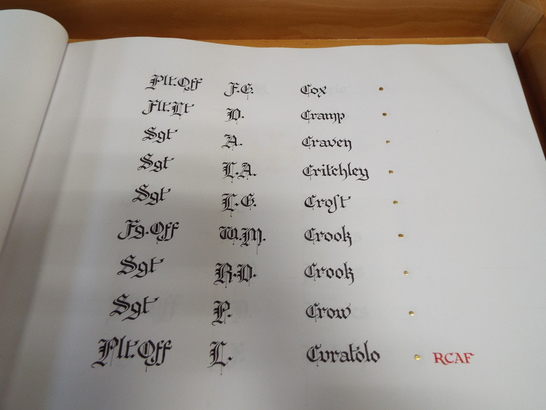 Plt.Off F.G. Cox
Flt.Lt D. Cramp
Sgt A. Craven
Sgt L.A. Critchley
Sgt L.G. Croft
Fg.Off W.M. Crook
Sgt R.D. Crook
Sgt P. Crow
Plt.Off L. Curatolo RCAF